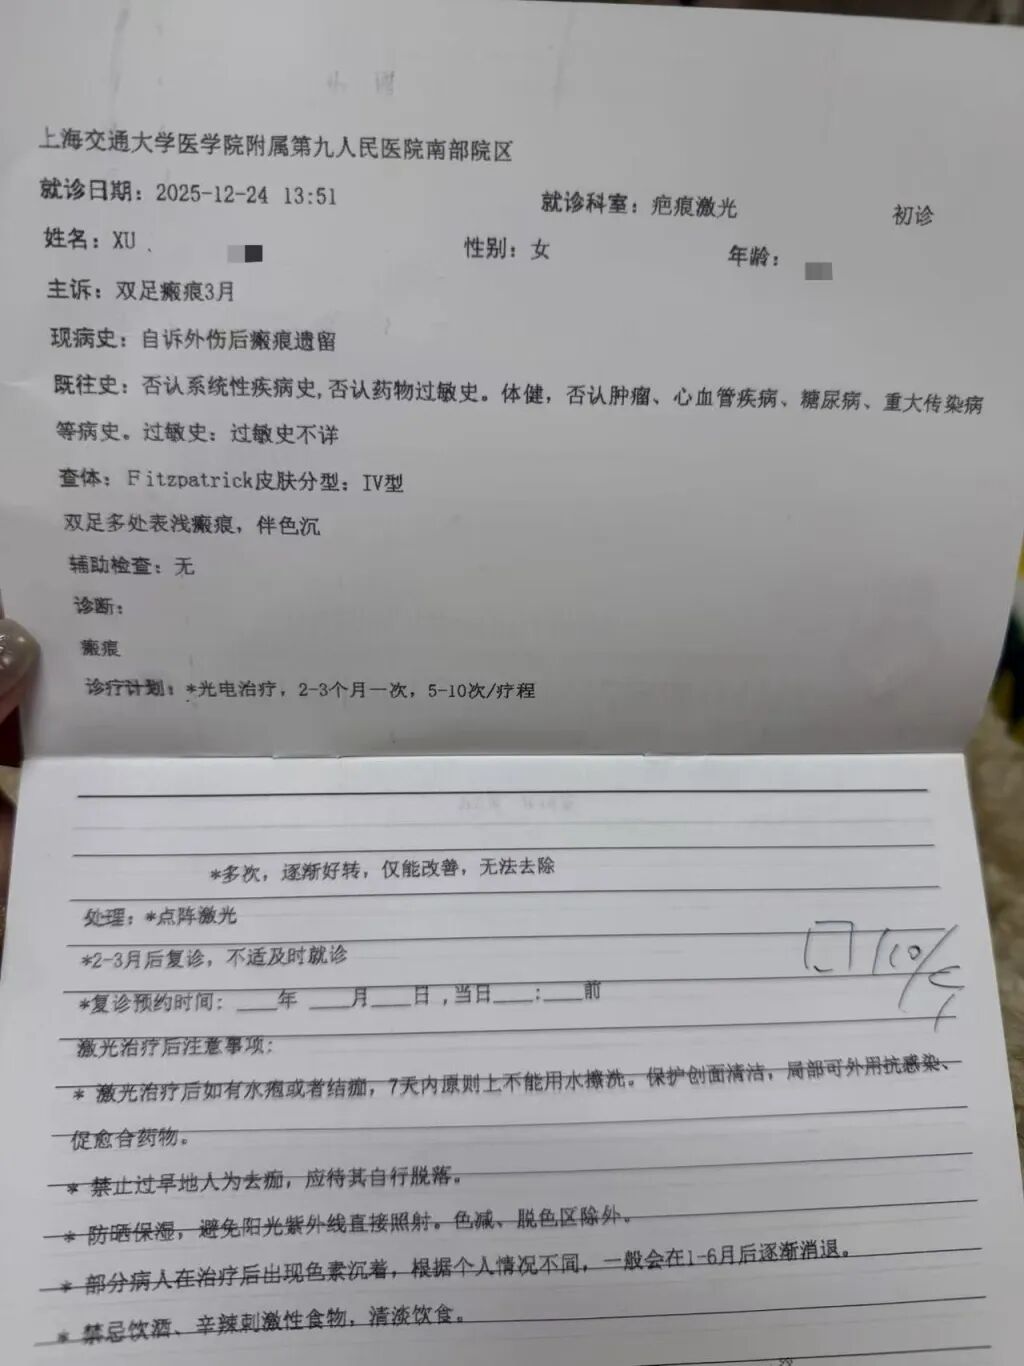 上海交通大学医学院附属第九人民医院南部院区
就诊日期：2025-12-24 13:51 就诊科室：疤痕激光 初诊
姓名：XU 性别：女 年龄：
主诉：双足瘢痕3月
现病史：自诉外伤后瘢痕遗留
既往史：否认系统性疾病史,否认药物过敏史。体健，否认肿瘤、心血管疾病、糖尿病、重大传染病
等病史。过敏史：过敏史不详
查体：Fitzpatrick皮肤分型：IV型
双足多处表浅瘢痕，伴色沉
辅助检查：无
诊断：
瘢痕
诊疗计划：*光电治疗，2-3个月一次，5-10次/疗程
*多次，逐渐好转，仅能改善，无法去除
处理：*点阵激光
*2-3月后复诊，不适及时就诊
*复诊预约时间：____年 ____月____日 ,当日____:____前
激光治疗后注意事项：
* 激光治疗后如有水疱或者结痂，7天内原则上不能用水擦洗。保护创面清洁，局部可外用抗感染、
促愈合药物。
* 禁止过早地人为去痂，应待其自行脱落。
* 防晒保湿，避免阳光紫外线直接照射。色减、脱色区除外。
* 部分病人在治疗后出现色素沉着，根据个人情况不同，一般会在1-6月后逐渐消退。
* 禁忌饮酒、辛辣刺激性食物，清淡饮食。